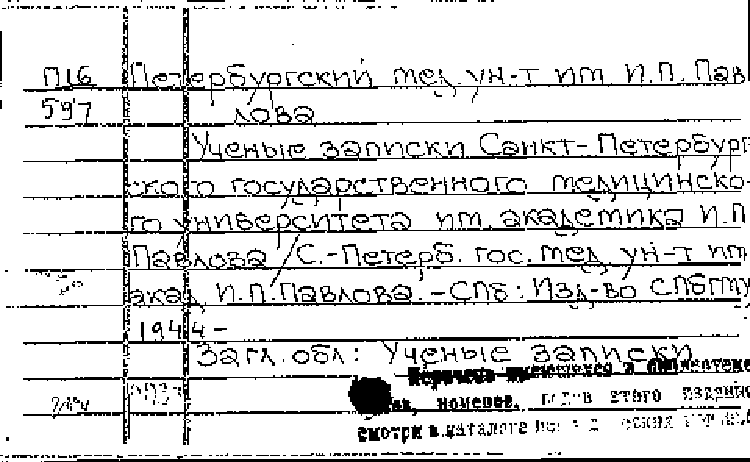 П16 Петербургский мед. ун-т им. И.П. Пав
597 лова
Ученые записки Санкт-Петербург
ского государственного медицинско-
го университета им. академика И.П.
Павлова / С.-Петерб. гос. мед. ун-т им.
акад. И.П. Павлова. - СПб: Изд-во СПбГМУ
1944 -
Загл. обл: Ученые записки
имеющихся в библиотеке
номеров, годов этого издания
смотри в каталоге